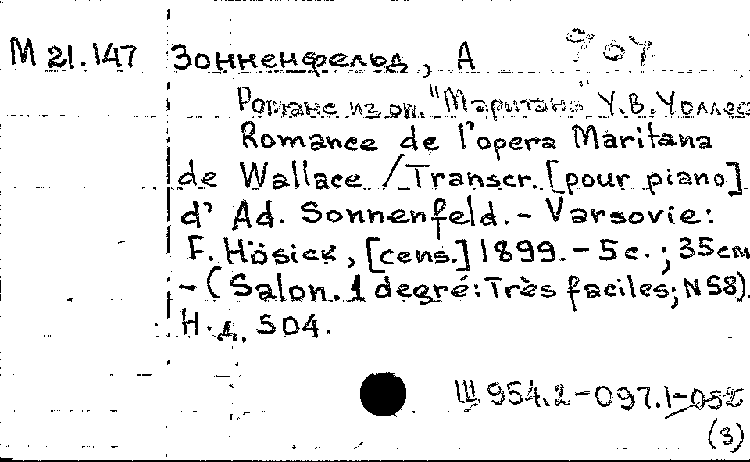 М 21.147 Зонненфельд, А 904
Романс из оп. "Маритана" У.В. Уоллес
Romance de l'opera Maritana
de Wallace / Transcr. [pour piano]
d' Ad. Sonnenfeld. - Varsovie:
F. Hösick, [cens.] 1899. - 5 с.; 35 см
- (Salon. 1 degré: Très faciles; N 58).
Н.д. 504.
Щ 954.2-097.1-052
(3)